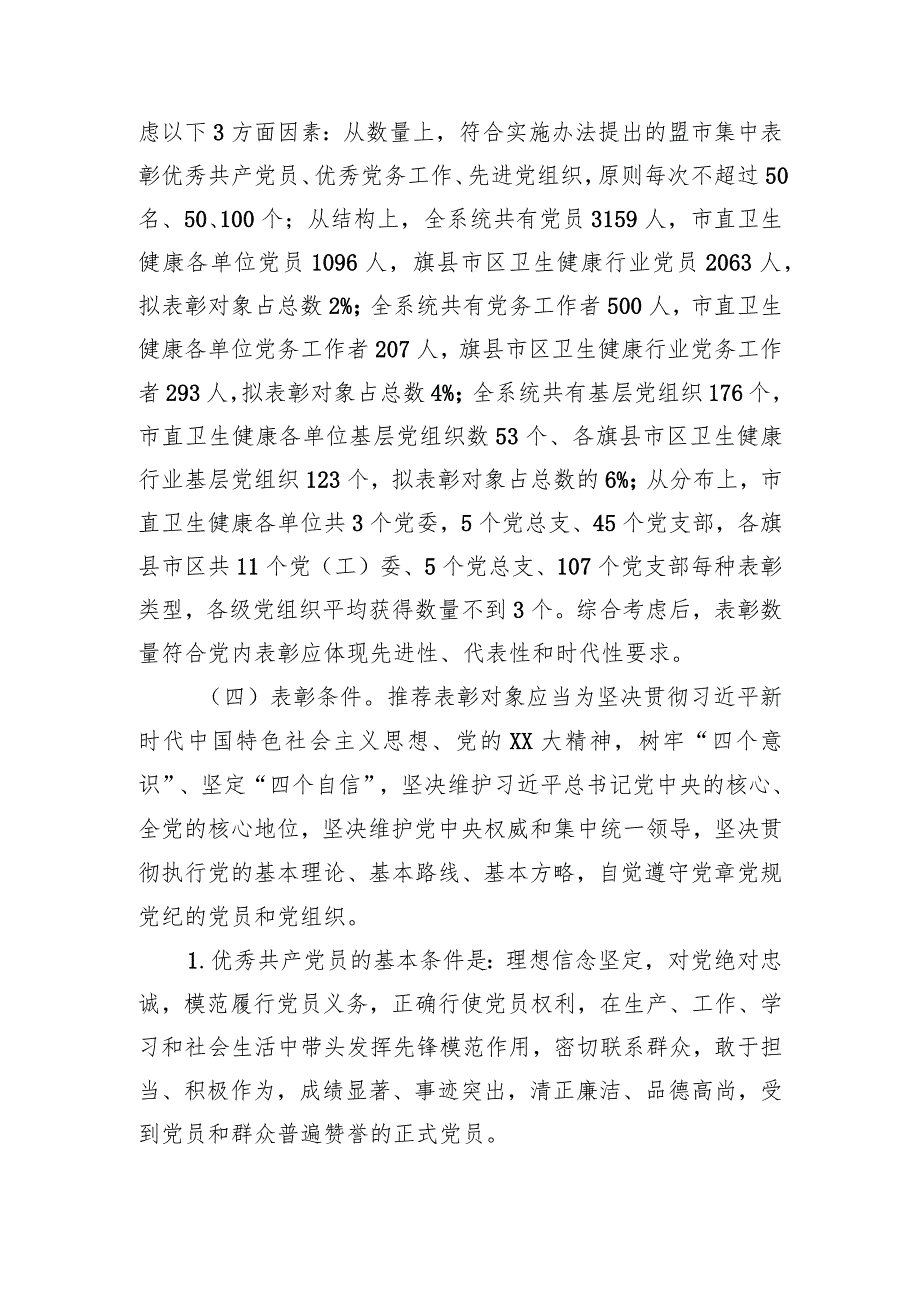 虑以下 3 方面因素：从数量上，符合实施办法提出的盟市集中表
彰优秀共产党员、优秀党务工作、先进党组织，原则每次不超过 50
名、50、100 个；从结构上，全系统共有党员 3159 人，市直卫生
健康各单位党员 1096 人，旗县市区卫生健康行业党员 2063 人，
拟表彰对象占总数 2%；全系统共有党务工作者 500 人，市直卫生
健康各单位党务工作者 207 人，旗县市区卫生健康行业党务工作
者 293 人，拟表彰对象占总数 4%；全系统共有基层党组织 176 个，
市直卫生健康各单位基层党组织数 53 个、各旗县市区卫生健康
行业基层党组织 123 个，拟表彰对象占总数的 6%；从分布上，市
直卫生健康各单位共 3 个党委，5 个党总支、45 个党支部，各旗
县市区共 11 个党（工）委、5 个党总支、107 个党支部每种表彰
类型，各级党组织平均获得数量不到 3 个。综合考虑后，表彰数
量符合党内表彰应体现先进性、代表性和时代性要求。
（四）表彰条件。推荐表彰对象应当为坚决贯彻习近平新
时代中国特色社会主义思想、党的 XX 大精神，树牢“四个意
识”、坚定“四个自信”，坚决维护习近平总书记党中央的核心、
全党的核心地位，坚决维护党中央权威和集中统一领导，坚决贯
彻执行党的基本理论、基本路线、基本方略，自觉遵守党章党规
党纪的党员和党组织。
1.优秀共产党员的基本条件是：理想信念坚定，对党绝对忠
诚，模范履行党员义务，正确行使党员权利，在生产、工作、学
习和社会生活中带头发挥先锋模范作用，密切联系群众，敢于担
当、积极作为，成绩显著、事迹突出，清正廉洁、品德高尚，受
到党员和群众普遍赞誉的正式党员。